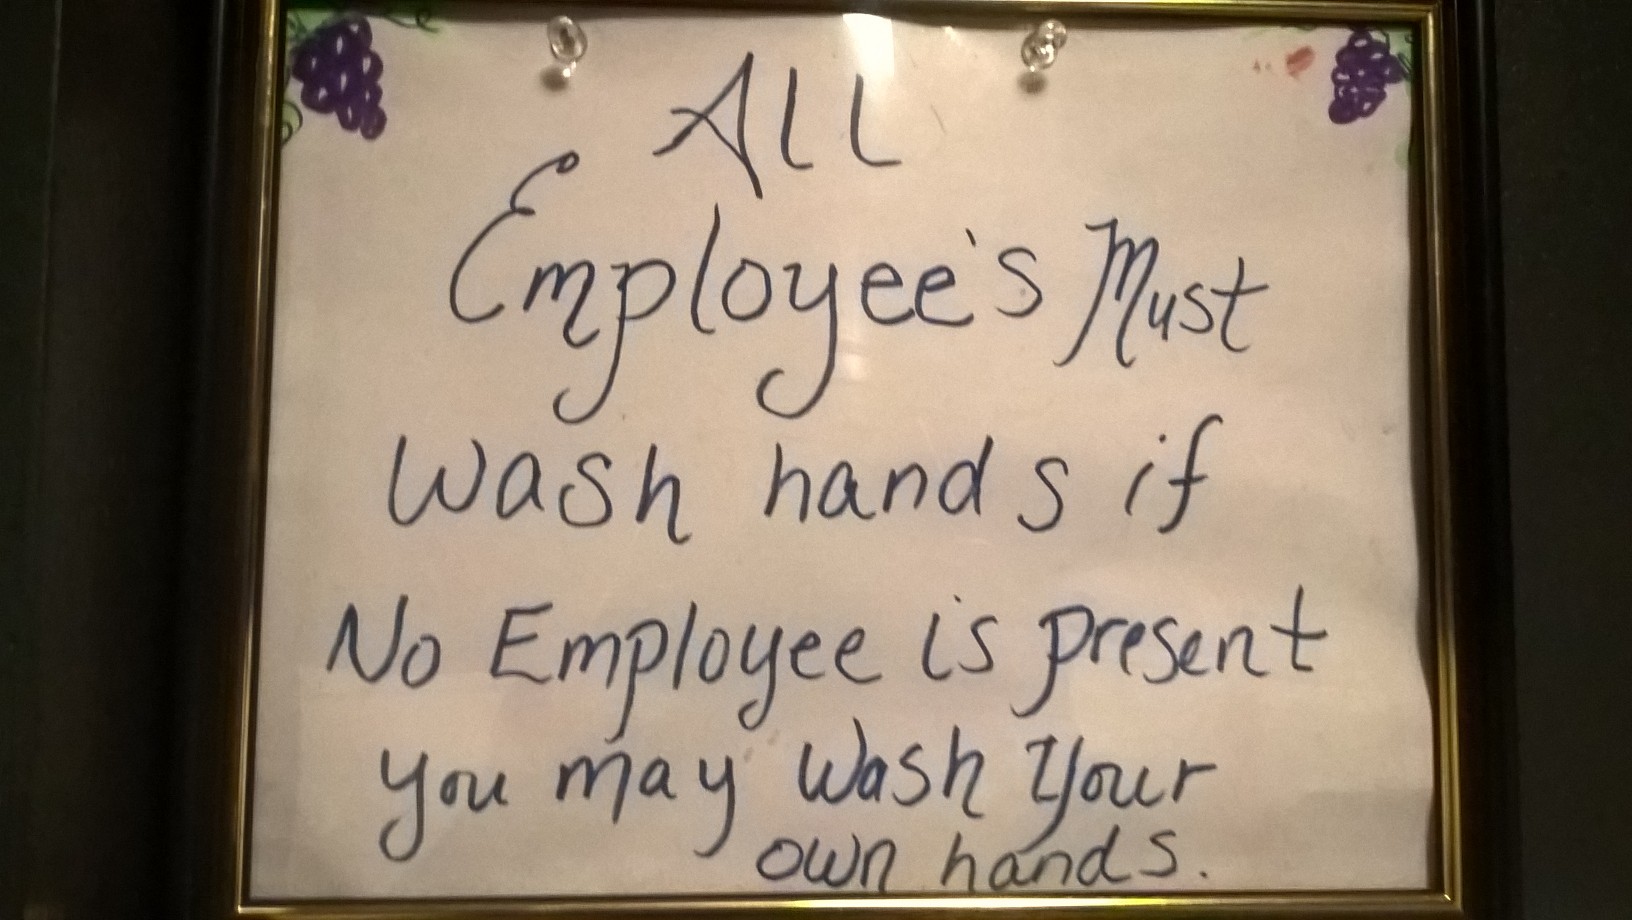 All
Employee's Must
Wash hands if
No Employee is present
you may Wash Your
own hands.